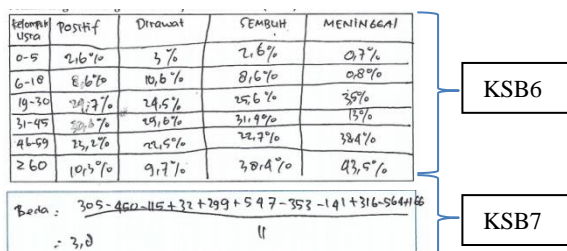 Kelompok Usia Positif Dirawat SEMBUH MENINGGAL
0-5 2,6% 3% 2,6% 0,7%
6-18 8,6% 10,6% 8,6% 0,8%
19-30 24,5% 25,6% 35%
31-45 29,6% 31,4% 13%
46-59 23,2% 22,5% 22,7% 384%
≥60 10,3% 9,7% 38,4% 43,5%
KSB6
Beda : 305-460-115+32+299+547-353-141+316-564+166
11
= 3,8
KSB7